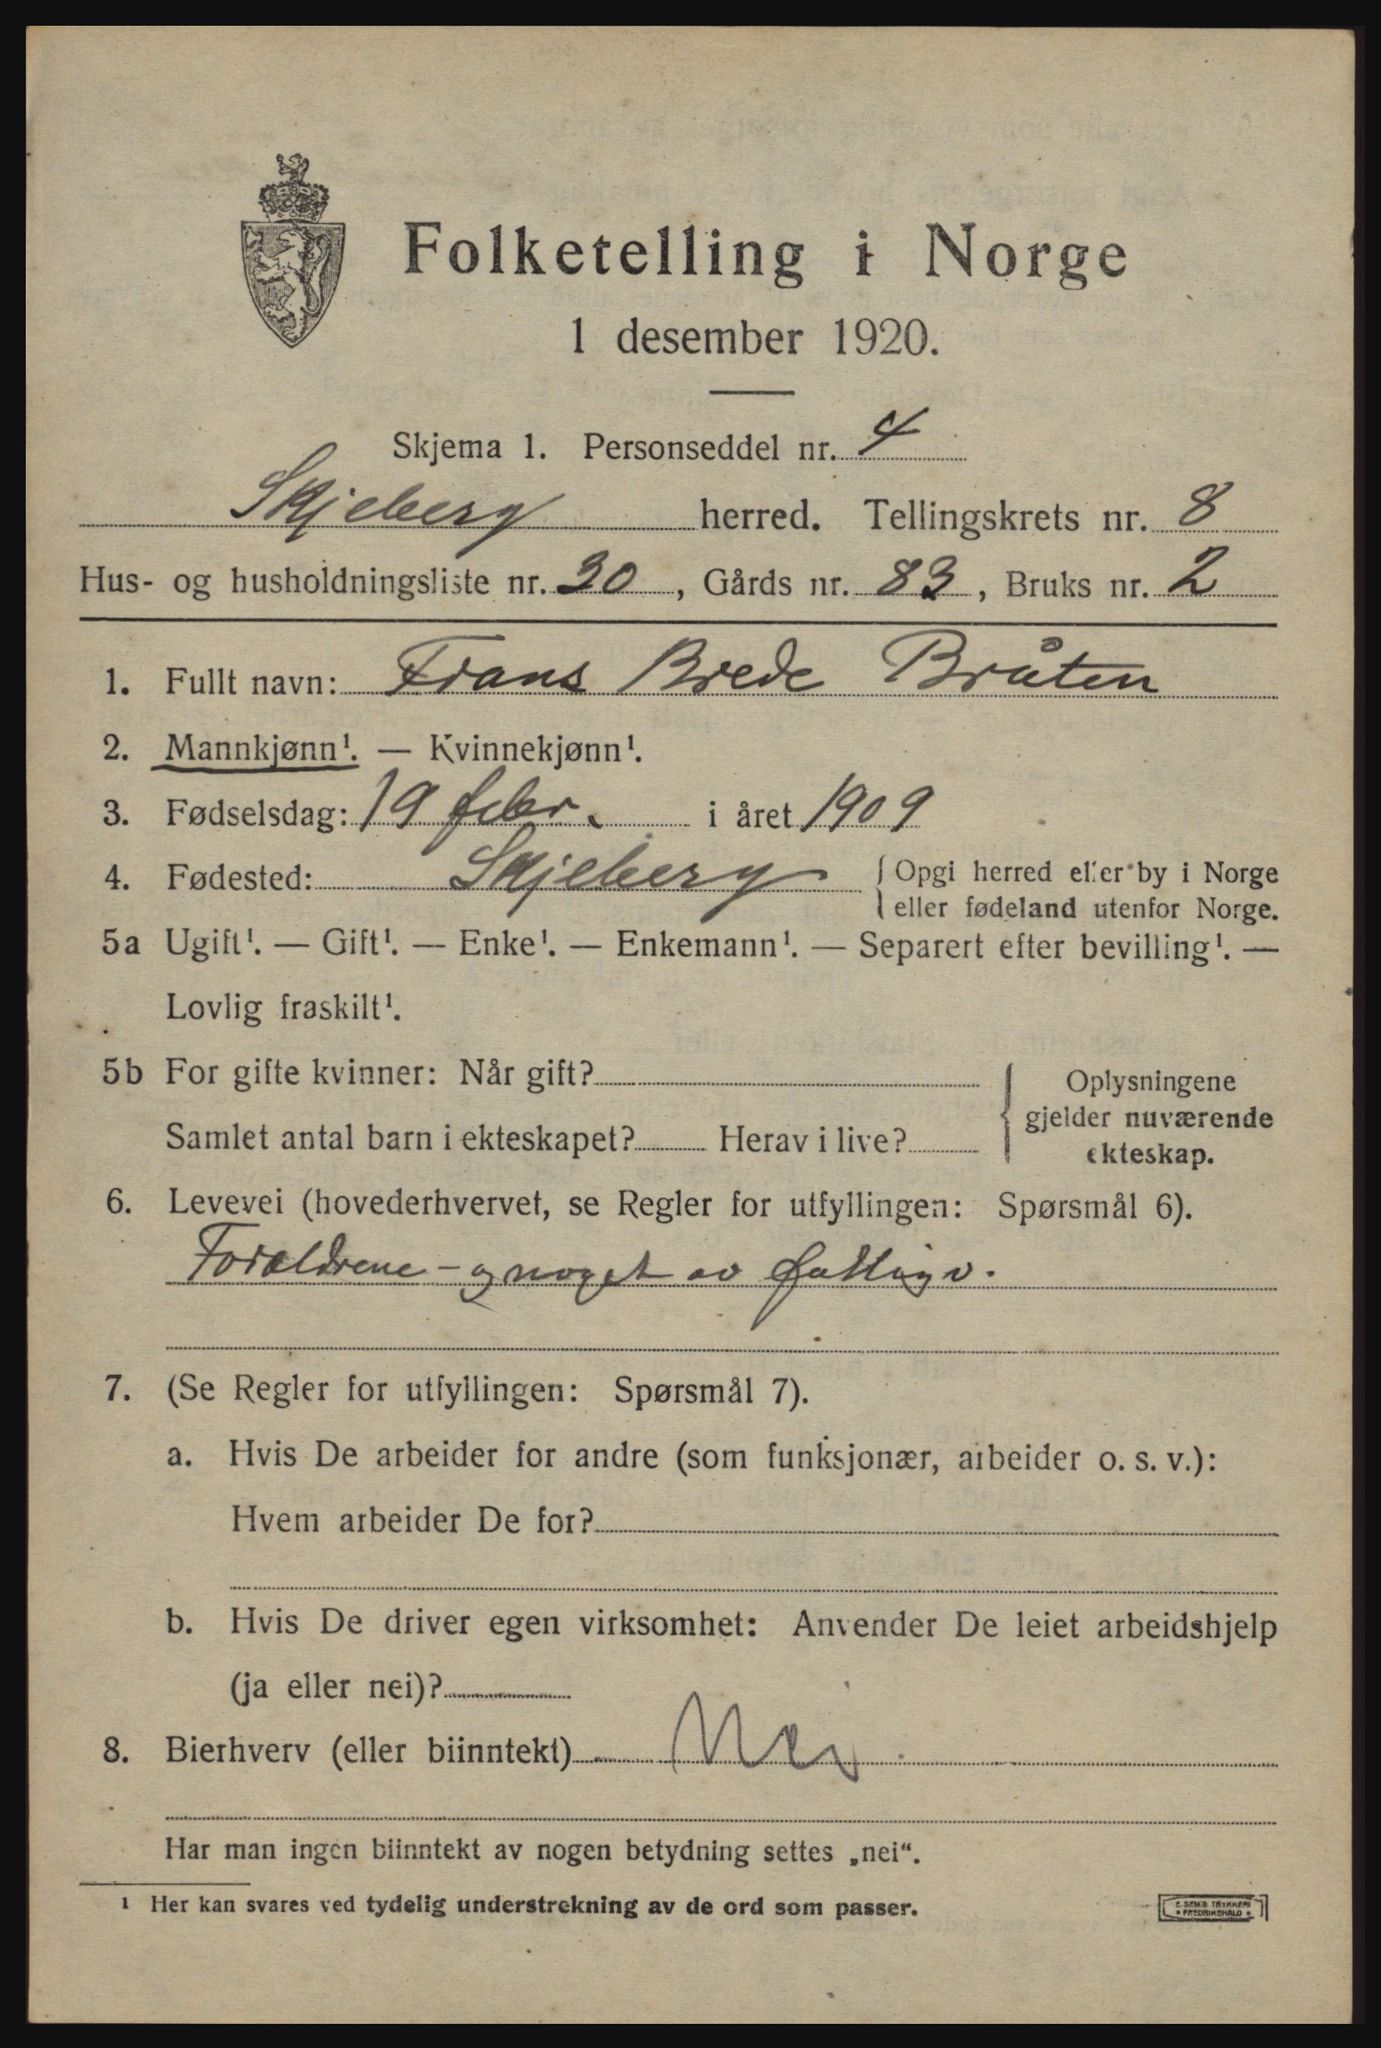 Folketelling i Norge
1 desember 1920.
Skjema 1. Personseddel nr. 4
Skjeberg herred. Tellingskrets nr. 8
Hus- og husholdningsliste nr. 30, Gårds nr. 83, Bruks nr. 2
1. Fullt navn: Frans Brede Bråten
2. Mannkjønn¹. — Kvinnekjønn¹.
3. Fødselsdag: 19 febr. i året 1909
4. Fødested: Skjeberg { Opgi herred eller by i Norge
{ eller fødeland utenfor Norge.
5a Ugift¹. — Gift¹. — Enke¹. — Enkemann¹. — Separert efter bevilling¹. —
Lovlig fraskilt¹.
5b For gifte kvinner: Når gift?
Samlet antal barn i ekteskapet? Herav i live?
Oplysningene
gjelder nuværende
ekteskap.
6. Levevei (hovederhvervet, se Regler for utfyllingen: Spørsmål 6).
Forældrene - og noget av fattigv.
7. (Se Regler for utfyllingen: Spørsmål 7).
a. Hvis De arbeider for andre (som funksjonær, arbeider o. s. v.):
Hvem arbeider De for?
b. Hvis De driver egen virksomhet: Anvender De leiet arbeidshjelp
(ja eller nei)?
8. Bierhverv (eller biinntekt) Nei.
Har man ingen biinntekt av nogen betydning settes „nei“.
1 Her kan svares ved tydelig understrekning av de ord som passer.
TRYKKERI
FREDRIKSHALD